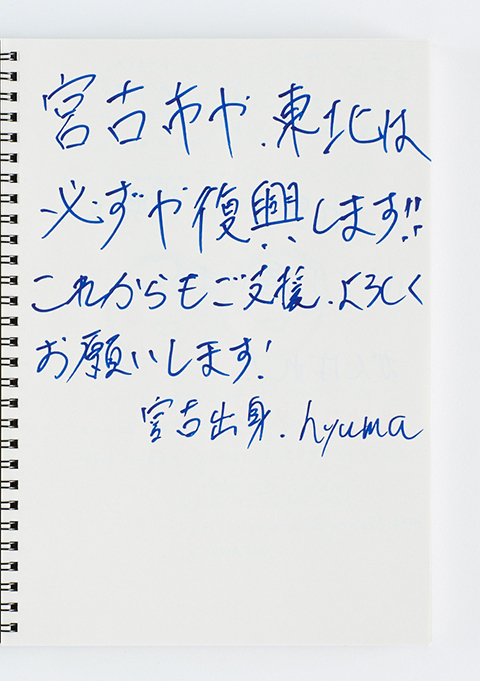 宮古市や、東北は
必ずや復興します!!
これからもご支援、よろしく
お願いします!
宮古出身. hyuma